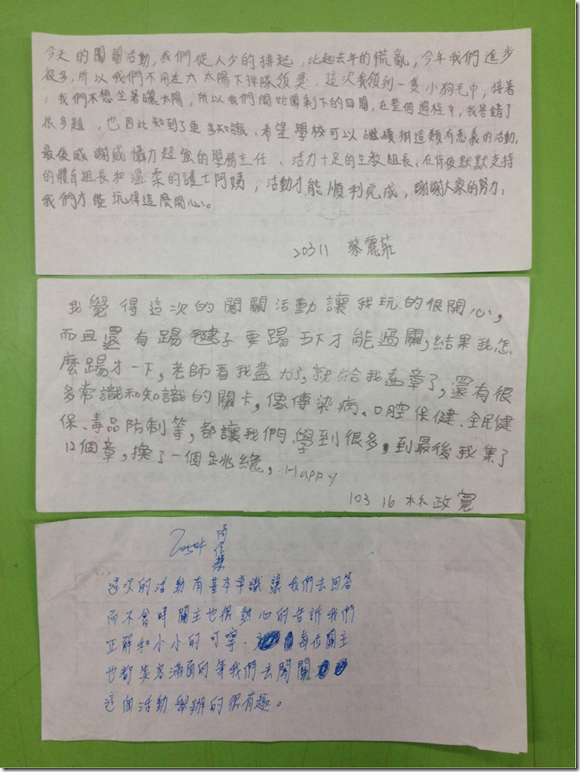 今天的闖關活動，我們從人少的排起，比起去年的慌亂，今年我們進步
很多，所以我們不用在大太陽下排隊領獎，這次我領到一隻小狗毛巾，接著
，我們不想坐著曬太陽，所以我們開始闖剩下的四關，在整個過程中，我答錯了
很多題，也因此知到了更多知識，希望學校可以繼續辦這類有意義的活動，
最後感謝威懾力超強的學務主任、活力十足的生教組長、在背後默默支持
的體育組長和溫柔的護士阿姨，活動才能順利完成，謝謝大家的努力，
我們才能玩得這麼開心。
20311 蔡麗莊
我覺得這次的闖關活動讓我玩的很開心，
而且還有踢毽子要踢五下才能過關，結果我怎
麼踢才一下，老師看我盡力了，就給我蓋章了，還有很
多常識和知識的關卡，像傳染病、口腔保健、全民健
保、毒品防制等，都讓我們學到很多，到最後我集了
12個章，換了一個跳繩，Happy
103 16 林政寬
這次的活動有基本常識讓我們去回答
而不會時關主也很熱心的告訴我們
正解和小小的叮嚀．每位關主
也都笑容滿面的等我們去闖關
這個活動舉辦的很有趣。